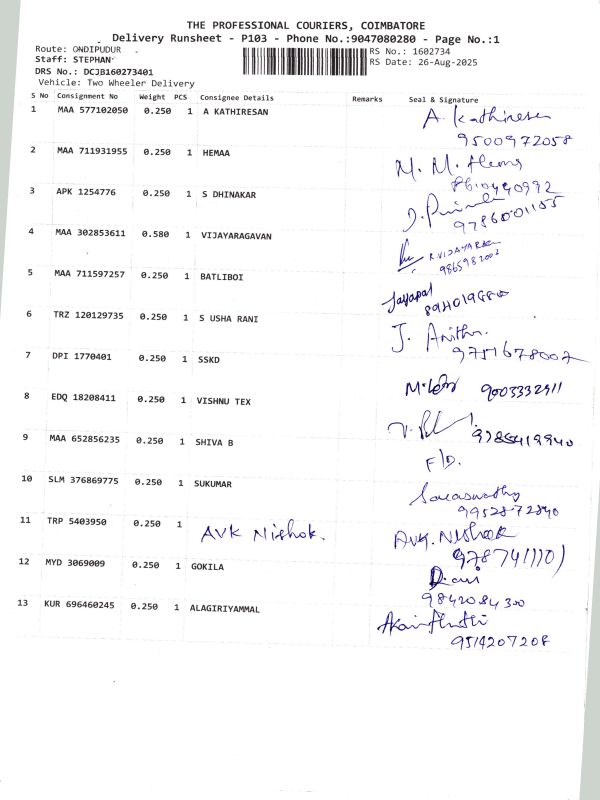 THE PROFESSIONAL COURIERS, COIMBATORE
Delivery Runsheet - P103 - Phone No.:9047080280 - Page No.:1
Route: ONDIPUDUR
RS No.: 1602734
Staff: STEPHAN
RS Date: 26-Aug-2025
DRS No.: DCJB160273401
Vehicle: Two Wheeler Delivery
S No Consignment No Weight PCS Consignee Details Remarks Seal & Signature
1 MAA 577102050 0.250 1 A KATHIRESAN A. Kathiresan
9500972058
2 MAA 711931955 0.250 1 HEMAA M. M. Hema
8610440992
3 APK 1254776 0.250 1 S DHINAKAR
9786001155
4 MAA 302853611 0.580 1 VIJAYARAGAVAN R.VIJAYARAG
9865982002
5 MAA 711597257 0.250 1 BATLIBOI Jayapal
6 TRZ 120129735 0.250 1 S USHA RANI J. Anitha.
9751678007
7 DPI 1770401 0.250 1 SSKD
9003332911
8 EDQ 18208411 0.250 1 VISHNU TEX
9785419940
9 MAA 652856235 0.250 1 SHIVA B F/D.
10 SLM 376869775 0.250 1 SUKUMAR Saraswathy
9952872840
11 TRP 5403950 0.250 1 AVK Nishok. AVK. NISHOK
9787411101
12 MYD 3069009 0.250 1 GOKILA
9842084300
13 KUR 696460245 0.250 1 ALAGIRIYAMMAL
9514207208